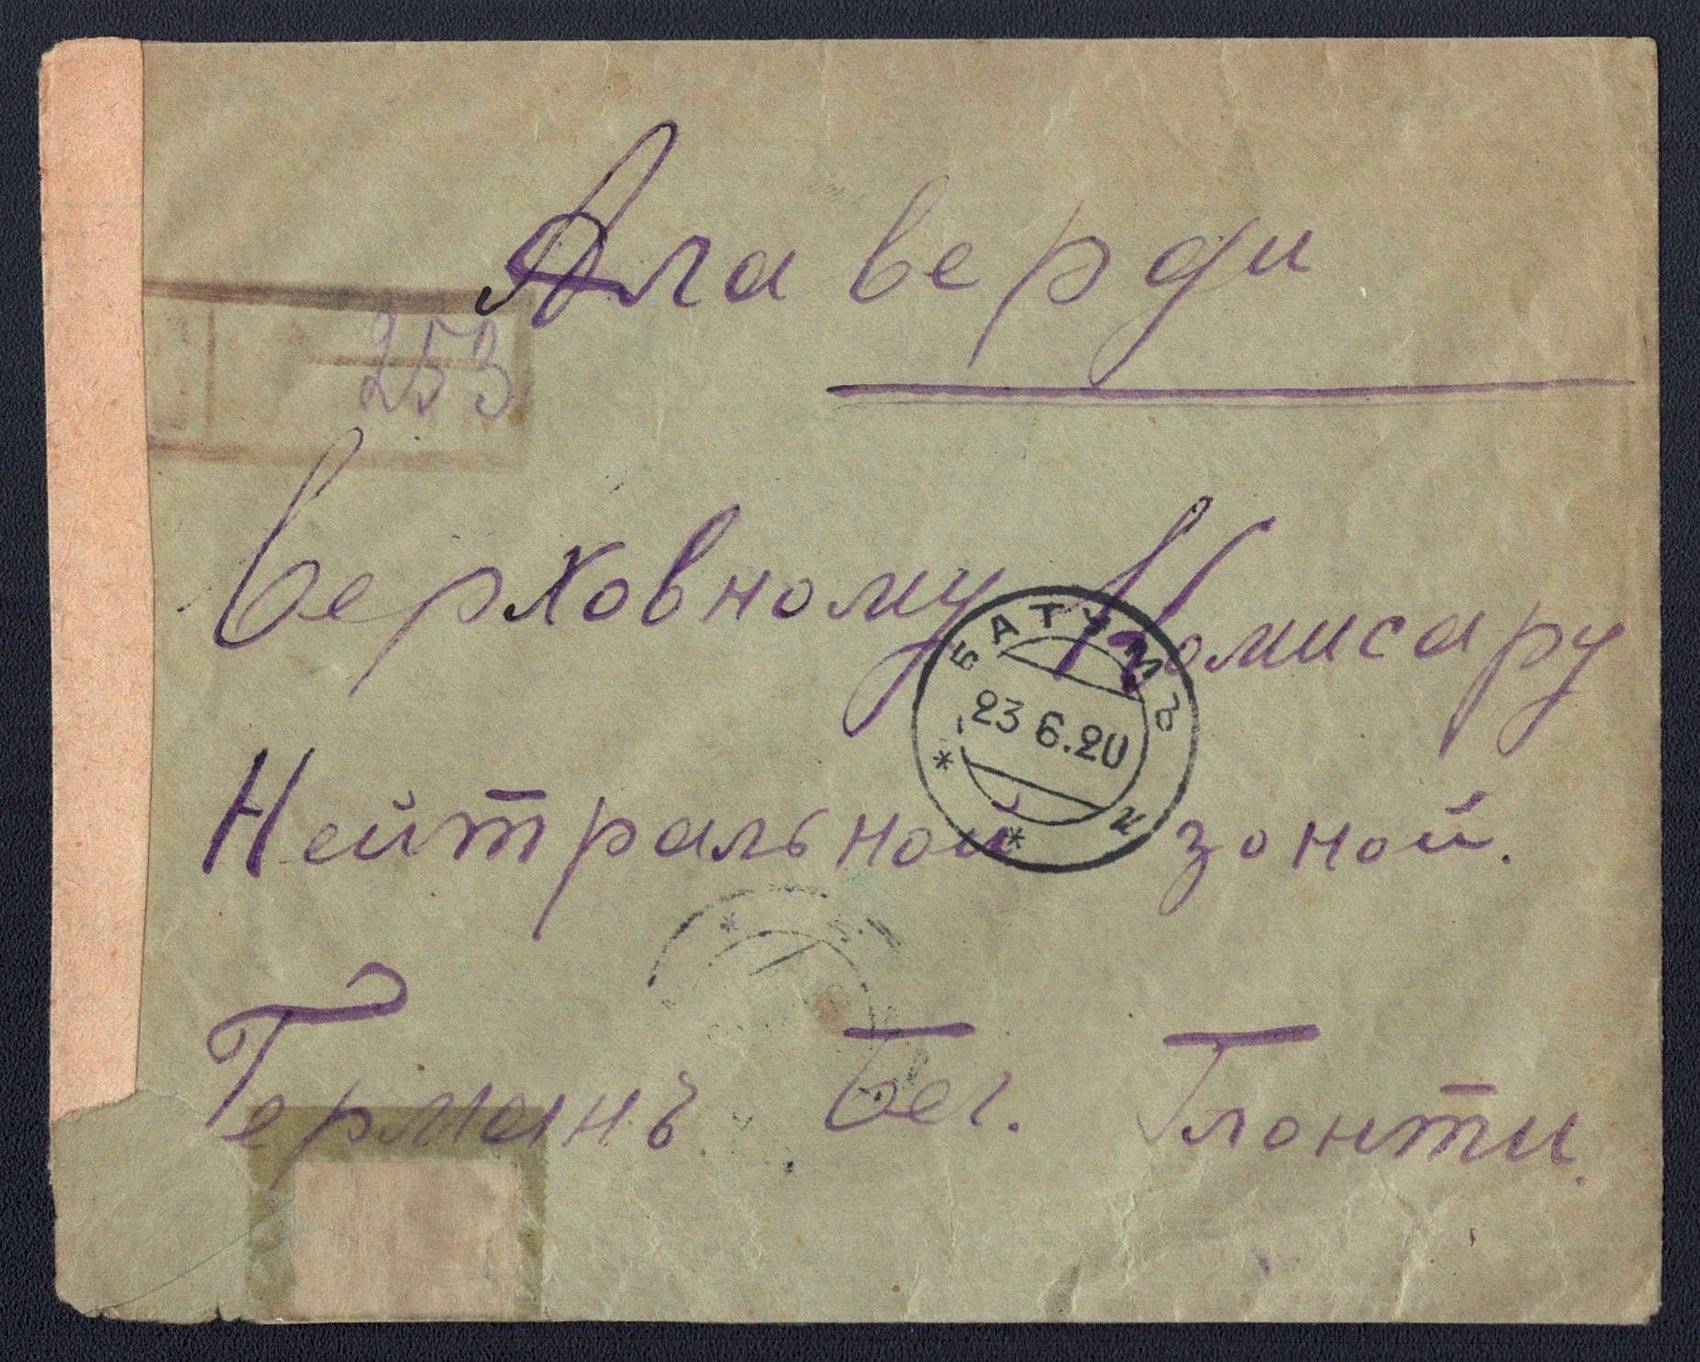 Алаверди
253
Верховному Комисару
БАТУМЪ
23 6.20
и
Нейтральной зоной.
Германъ Бег. Глонти.